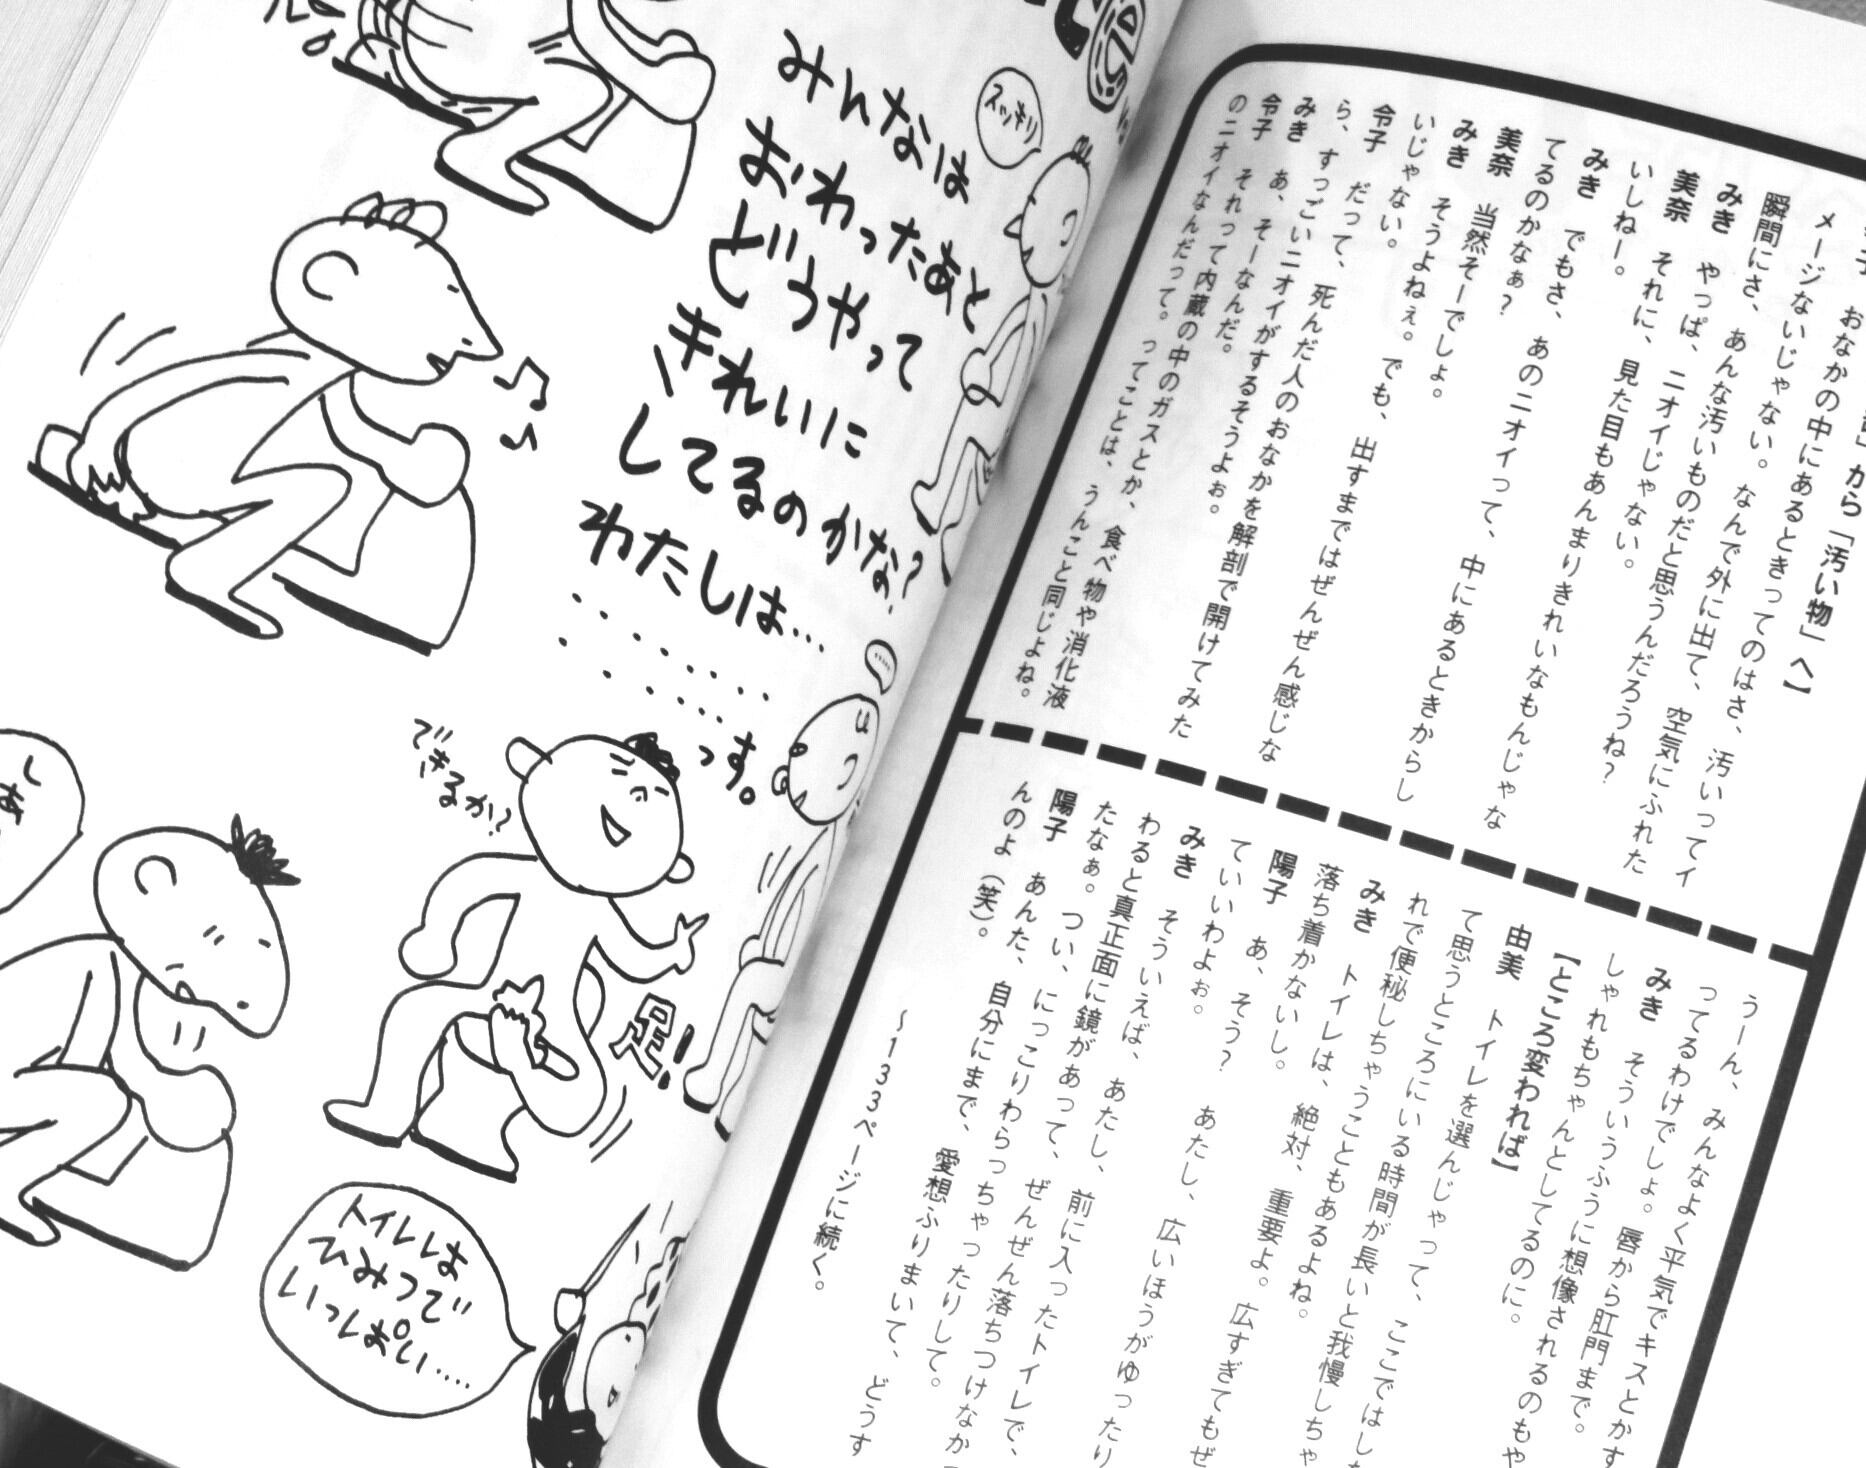 みんなは
おわったあと
どうやって
きれいに
してるのかな?
わたしは…
っす。
スッキリ
できるか?
足!
トイレは
ひみつで
いっぱい….
しあ
から「汚い物」へ】
おなかの中にあるときってのはさ、汚いってイ
メージないじゃない。なんで外に出て、空気にふれた
瞬間にさ、あんな汚いものだと思うんだろうね?
みき やっぱ、ニオイじゃない。
美奈 それに、見た目もあんまりきれいなもんじゃな
いしねー。
みき でもさ、あのニオイって、中にあるときからし
てるのかなぁ?
美奈 当然そーでしょ。
みき そうよねぇ。でも、出すまではぜんぜん感じな
いじゃない。
令子 だって、死んだ人のおなかを解剖で開けてみた
ら、すっごいニオイがするそうよぉ。
みき あ、そーなんだ。
令子 それって内蔵の中のガスとか、食べ物や消化液
のニオイなんだって。ってことは、うんこと同じよね。
うーん、みんなよく平気でキスとかす
ってるわけでしょ。唇から肛門まで。
みき そういうふうに想像されるのもや
しゃれもちゃんとしてるのに。
【ところ変われば】
由美 トイレを選んじゃって、ここではした
て思うところにいる時間が長いと我慢しちゃ
れで便秘しちゃうこともあるよね。
みき トイレは、絶対、重要よ。広すぎてもぜ
落ち着かないし。
陽子 あ、そう? あたし、広いほうがゆったり
ていいわよぉ。
みき そういえば、あたし、前に入ったトイレで、
わると真正面に鏡があって、ぜんぜん落ちつけなか
たなぁ。つい、にっこりわらっちゃったりして。
陽子 あんた、自分にまで、愛想ふりまいて、どうす
んのよ(笑)。
〜133ページに続く。